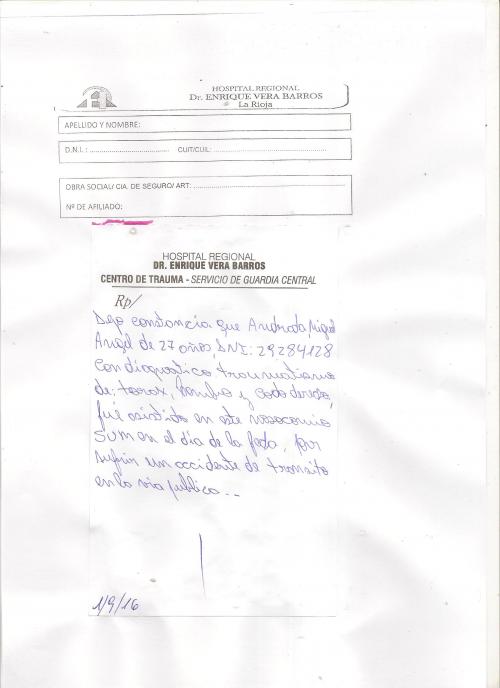 HOSPITAL REGIONAL
Dr. ENRIQUE VERA BARROS
La Rioja
APELLIDO Y NOMBRE:
D.N.I. : ........................... CUIT/CUIL: ........................................
OBRA SOCIAL/ CIA. DE SEGURO/ ART: ........................................
Nº DE AFILIADO:
HOSPITAL REGIONAL
DR. ENRIQUE VERA BARROS
CENTRO DE TRAUMA - SERVICIO DE GUARDIA CENTRAL
Rp/
Dejo constancia que Andrada Miguel
Angel de 27 años, DNI: 29284128
con diagnostico traumatismo
de: torax, hombro y codo derecho,
fué asistido en este nosocomio
en el día de la fecha, por
sufrir un accidente de transito
en la via publica...
1/9/16